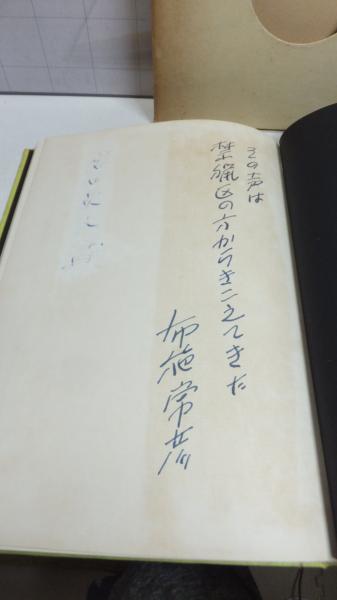 その声は
禁猟区の方からきこえてきた
布施常彦